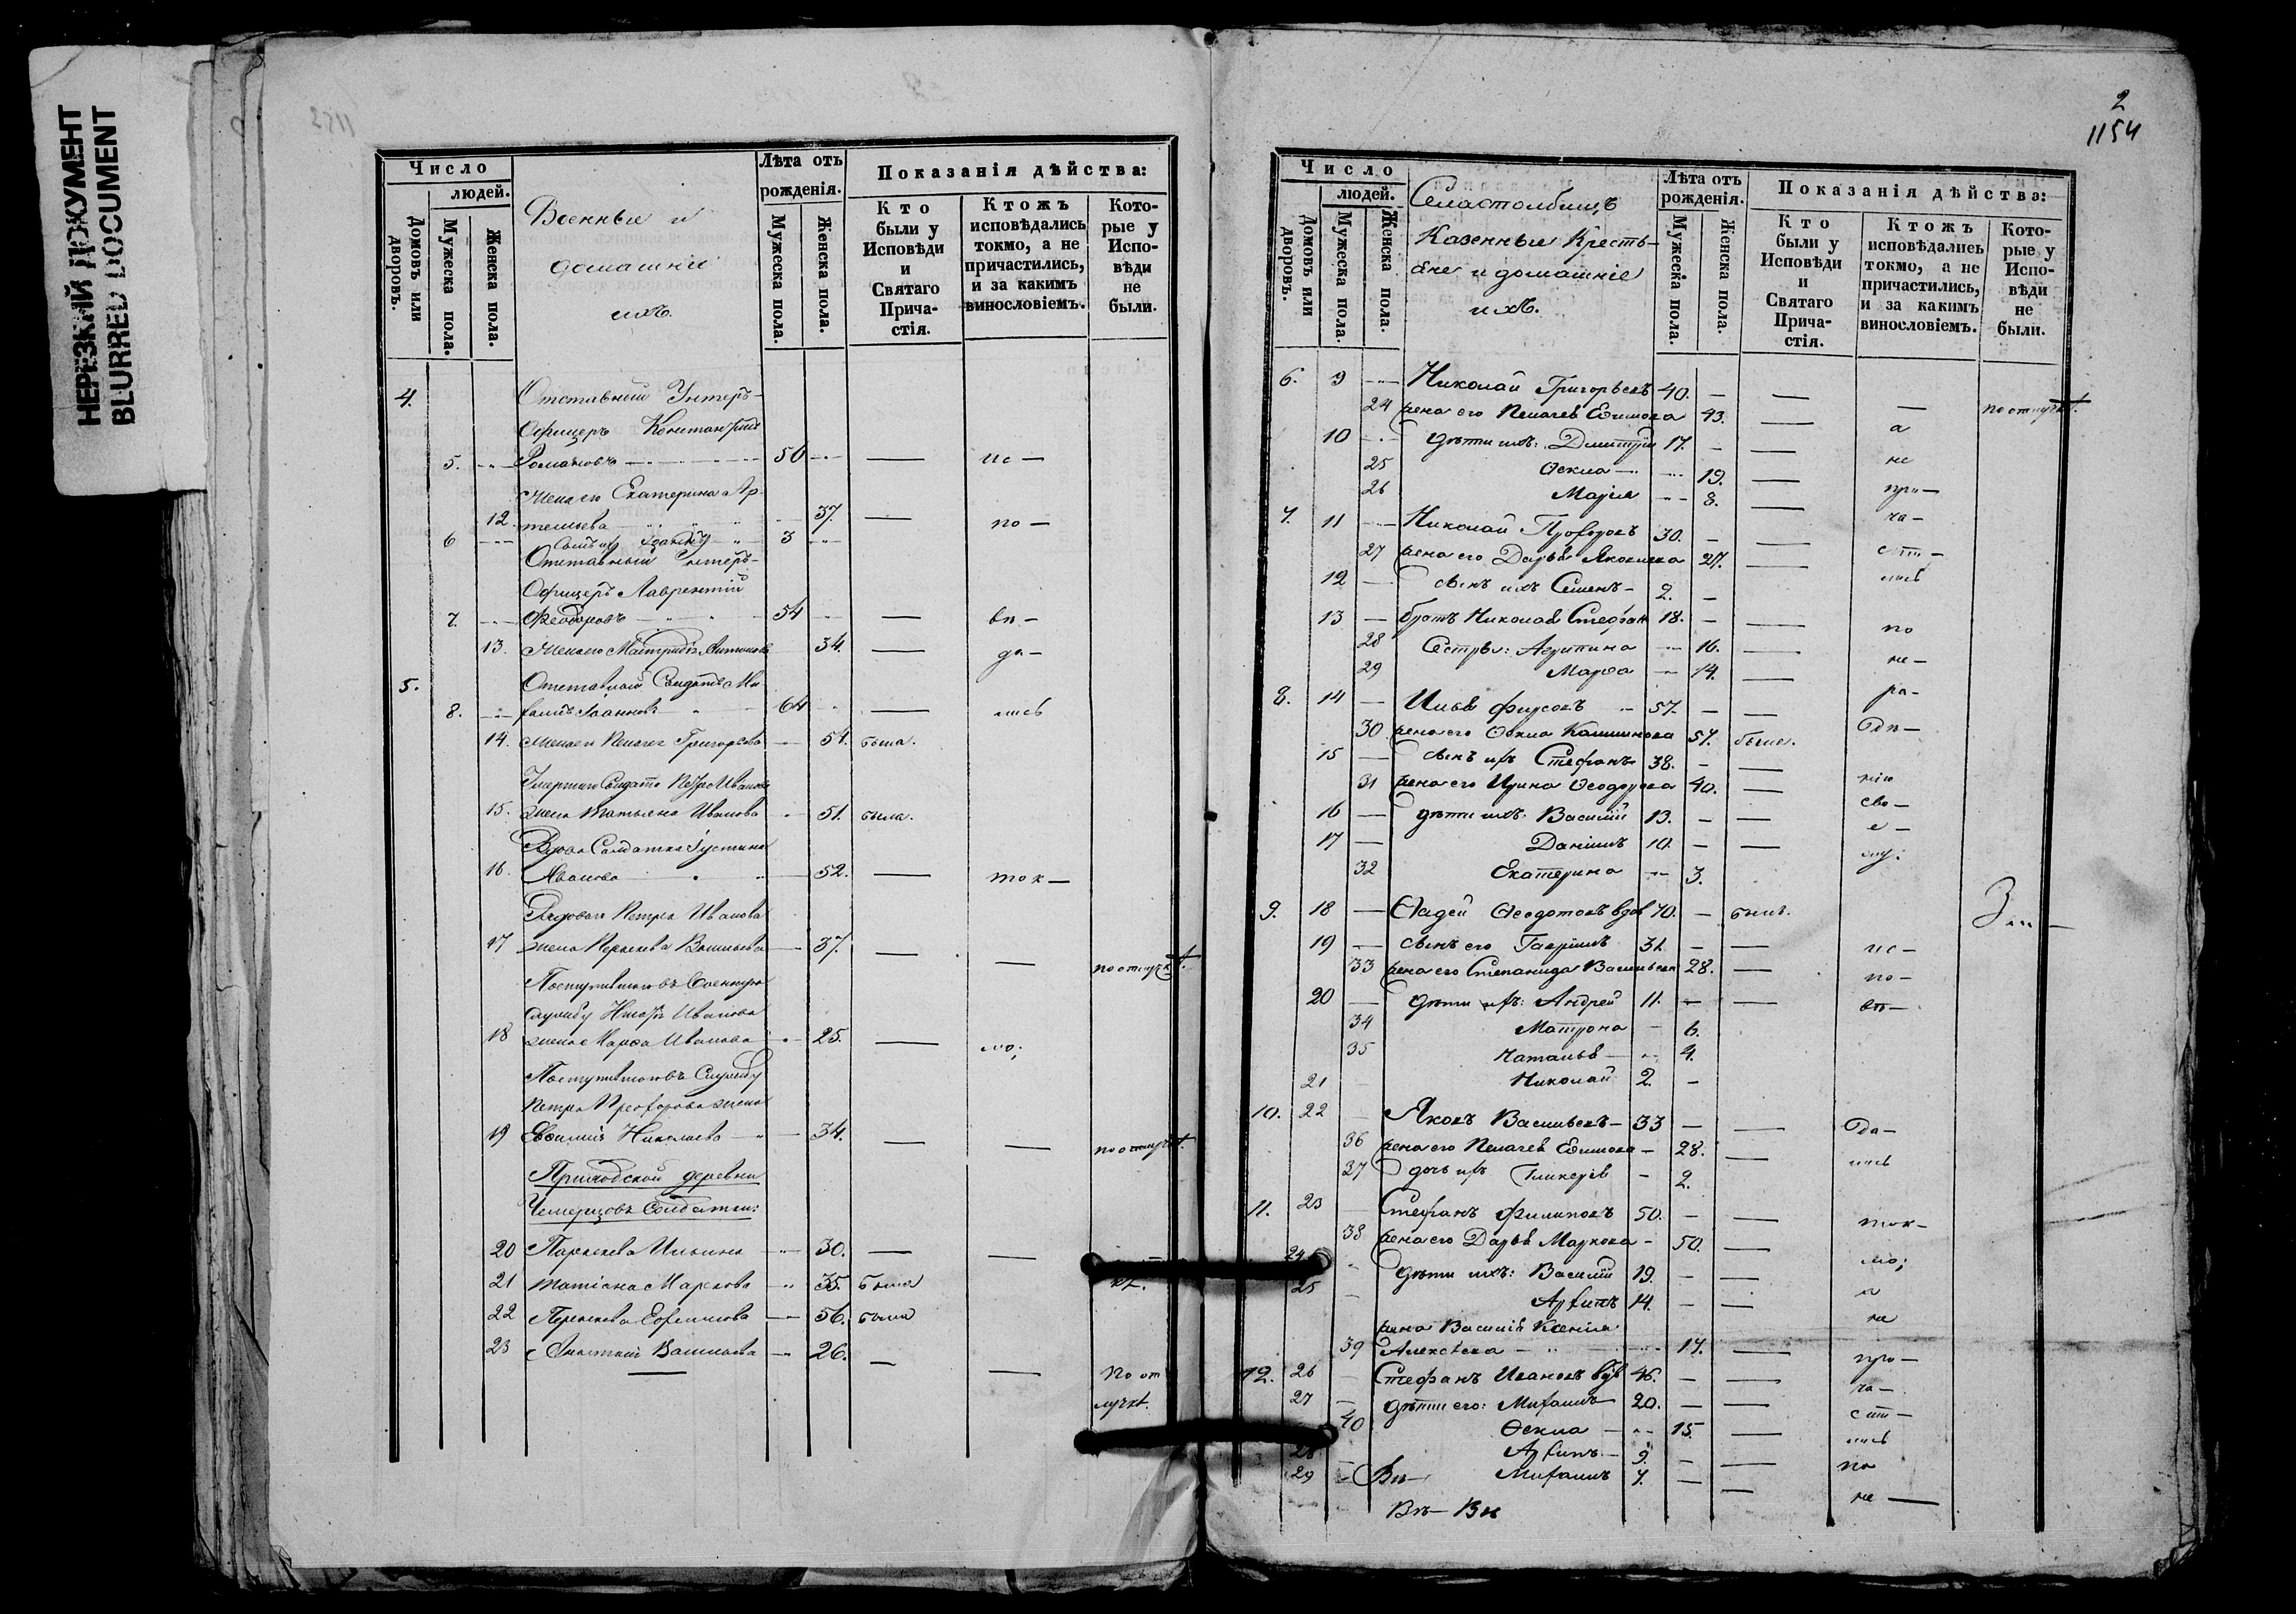 НЕРЕЗКИЙ ДОКУМЕНТ
BLURRED DOCUMENT
Число
людей.
Домовъ или дворовъ.
Мужеска пола.
Женска пола.
Военные и
домашніе
ихъ.
Лѣта отъ
рожденія.
Мужеска пола.
Женска пола.
Показанія дѣйства:
Кто
были у
Исповѣди
и
Святаго
Прича-
стія.
Ктожъ
исповѣдались
токмо, а не
причастились,
и за какимъ
винословіемъ.
Кото-
рые у
Испо-
вѣди
не
были.
4. Отставный Унтеръ-
Офицеръ
5. Романовъ 50 ис-
Жена его Екатерина Ар-
12. темьева 37. по-
6 Сынъ ихъ Іоаннъ 3
Отставный Унтеръ-
Офицеръ Лаврентій
7. Ѳеодоровъ 54 вѣ-
13. Жена его Антонова 34. да-
5. Отставной Солдатъ Ми-
8. хаилъ Іоанновъ 64 лись
14. Жена его Пелагея Григорьева 54. была.
Умершаго Солдата Петра Иванова
15. жена Татьяна Иванова 51. была.
Вдова Солдатка Іустина
16. Иванова 52. ток-
Рядоваго Петра Иванова
17 жена Параскева Васильева 37. по отлучкѣ.
Поступившаго въ Военную
службу Иванова
18 жена Марѳа Иванова 25. мо;
Поступившаго въ Службу
Петра Прохорова жена
19 Евѳимія Николаева 34. по отлучкѣ.
Приходской деревни
Солдатки:
20 Параскева Ильина 30.
21 Татіана Маркова 35. была
22 Параскева Ефимова 56. была
23 Васильева 26. По от
лучкѣ.
2
1154
Число
людей.
Домовъ или дворовъ.
Мужеска пола.
Женска пола.
Казенные Кресть-
яне и домашніе
ихъ.
Лѣта отъ
рожденія.
Мужеска пола.
Женска пола.
Показанія дѣйства:
Кто
были у
Исповѣди
и
Святаго
Прича-
стія.
Ктожъ
исповѣдались
токмо, а не
причастились,
и за какимъ
винословіемъ.
Кото-
рые у
Испо-
вѣди
не
были.
6. 9 Николай Григорьевъ 40. по отлучкѣ.
24 жена его Пелагея Ефимова 43. а
10 дѣти ихъ: Димитрій 17. не
25 Ѳекла 19. при-
26 Марія 8. ча-
7. 11 Николай Прохоровъ 30. сти-
27 жена его Дарья Яковлева 27. лись
12 сынъ ихъ Семенъ 2.
13 братъ Николая Стефанъ 18. по
28 Сестры: Агрипина 16. не-
29 Марѳа 14. ра-
8. 14 Илья Фирсовъ 57. дѣ-
30 жена его Ѳекла 57. была. нію
15 сынъ ихъ Стефанъ 38. сво-
31 жена его Ирина Ѳеодорова 40. е-
16 дѣти ихъ: Василій 13. му:
17 Даніилъ 10.
32 Екатерина 3.
9. 18 Ѳадей Ѳеодотовъ вдов 70. былъ.
19 сынъ его Гавріилъ 31. ис-
33 жена его Степанида Васильева 28. по-
20 дѣти ихъ: Андрей 11. вѣ-
34 Матрона 6.
35 Наталья 4.
21 Николай 2.
10. 22 Яковъ Васильевъ 33 да-
36 жена его Пелагея Ефимова 28. лись
37 дочь ихъ Гликерія 2.
11. 23 Стефанъ Филиповъ 50. ток-
38 жена его Дарья Маркова 50. мо;
24 дѣти ихъ: Василій 19. а
25 Архипъ 14. не
жена Василія Ксенія
39 Алексѣева 17. при-
12. 26 Стефанъ Ивановъ вдв 46. ча-
27 дѣти его: Михаилъ 20. сти-
40 Ѳекла 15. лись
28 Архипъ 9. по
29 Михаилъ 7. не